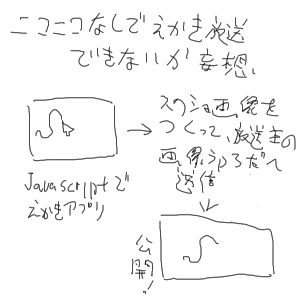 ニコニコなしでえかき放送
できないか妄想、
Javascriptで
えかきアプリ
スクショ画像を
つくって、放送主の
画像ふぉるだへ
送信
公開!